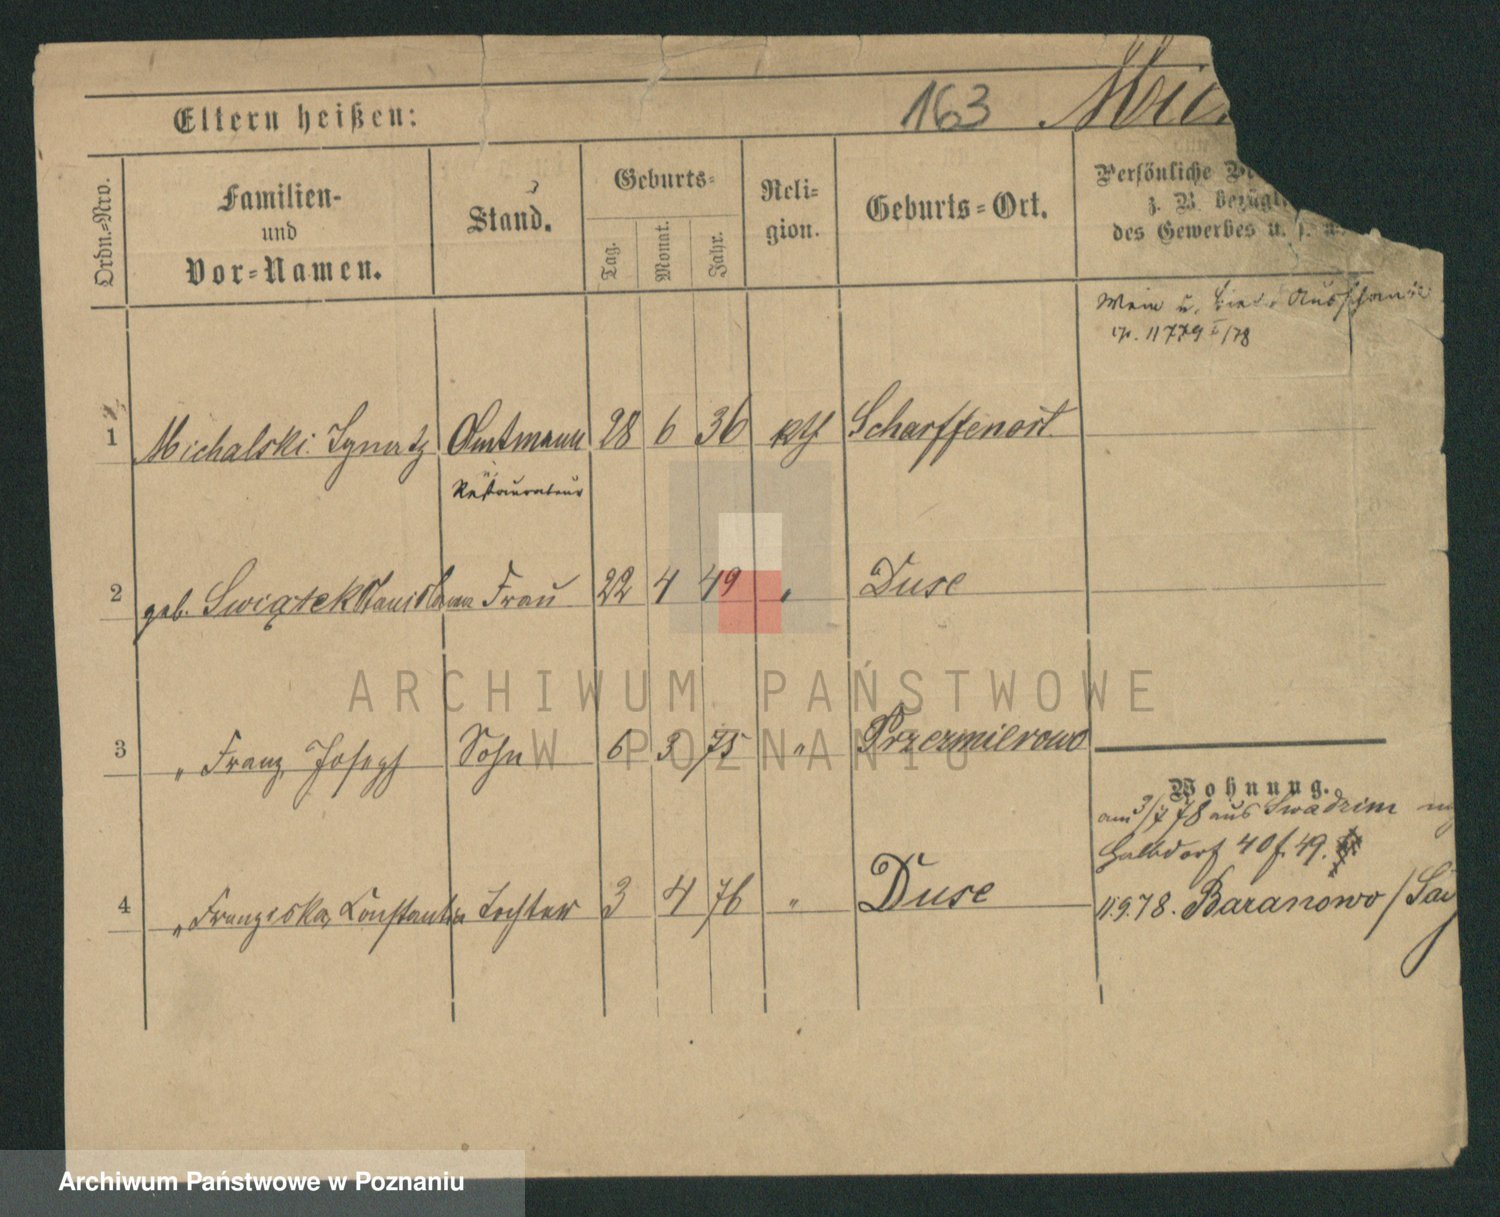 Eltern heißen:
163
Mic
Ordn.=Nro.
Familien-
und
Vor=Namen.
Stand.
Geburts=
Tag.
Monat.
Jahr.
Reli=
gion.
Geburts=Ort.
Persönliche
z. B. bezügl
des Gewerbes u. s. w.
Wein u. Bier Ausschank
11779 I/78
1 Michalski Ignatz Amtmann 28 6 36 kth Scharffenort
Restaurateur
2 geb. Swiątek Stanislawa Frau 22 4 49 " Duse
3 " Franz Joseph Sohn 6 3 75 " Przezmierowo
Wohnung.
am 3/7 78 aus Swadzim
Halbdorf 40 f. 49.
4 " Franziska Constantia Tochter 3 4 76 " Duse
11.9.78. Baranowo /
ARCHIWUM PAŃSTWOWE
W POZNANIU
Archiwum Państwowe w Poznaniu